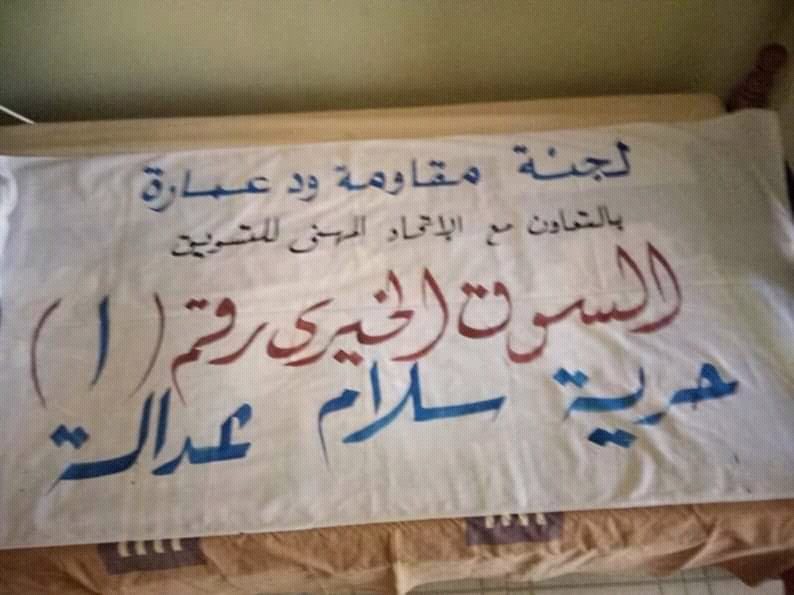 لجنة مقاومة ود عمارة
بالتعاون مع الاتحاد المهنى للتسويق
السوق الخيرى رقم (١)
حرية سلام عدالة